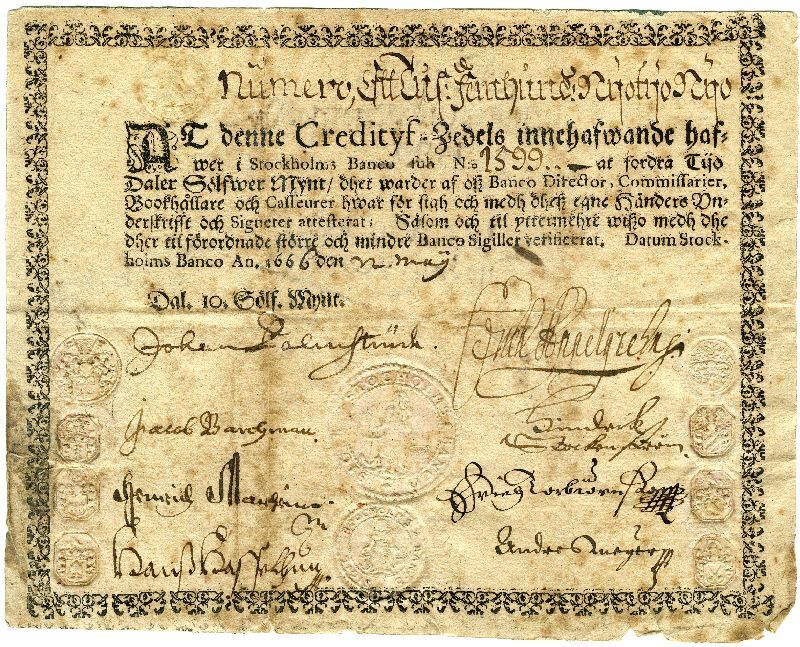 Numero, Ett Tus: Femhund: Nijotijo Nijo
AT denne Credityf-Zedels innehafwande haf-
wer i Stockholms Banco sub N:o 1599. at fordra Tijo
Daler Sölfwer Mynt / dhet warder af oß Banco Director, Commissarier,
Bookhållare och Casseurer hwar för sigh och medh dheß egne Händers Vn-
derskrifft och Signeter attesterat; Såsom och til yttermehre wißo medh dhe
dher til förordnade större och mindre Banco Sigiller verificerat. Datum Stock-
holms Banco An. 1666 den maij
Dal. 10. Sölf. Mynt.
Johan Palmstruch.
Jacob Barchman.
Hindrick
Henrich
Anders Meyer